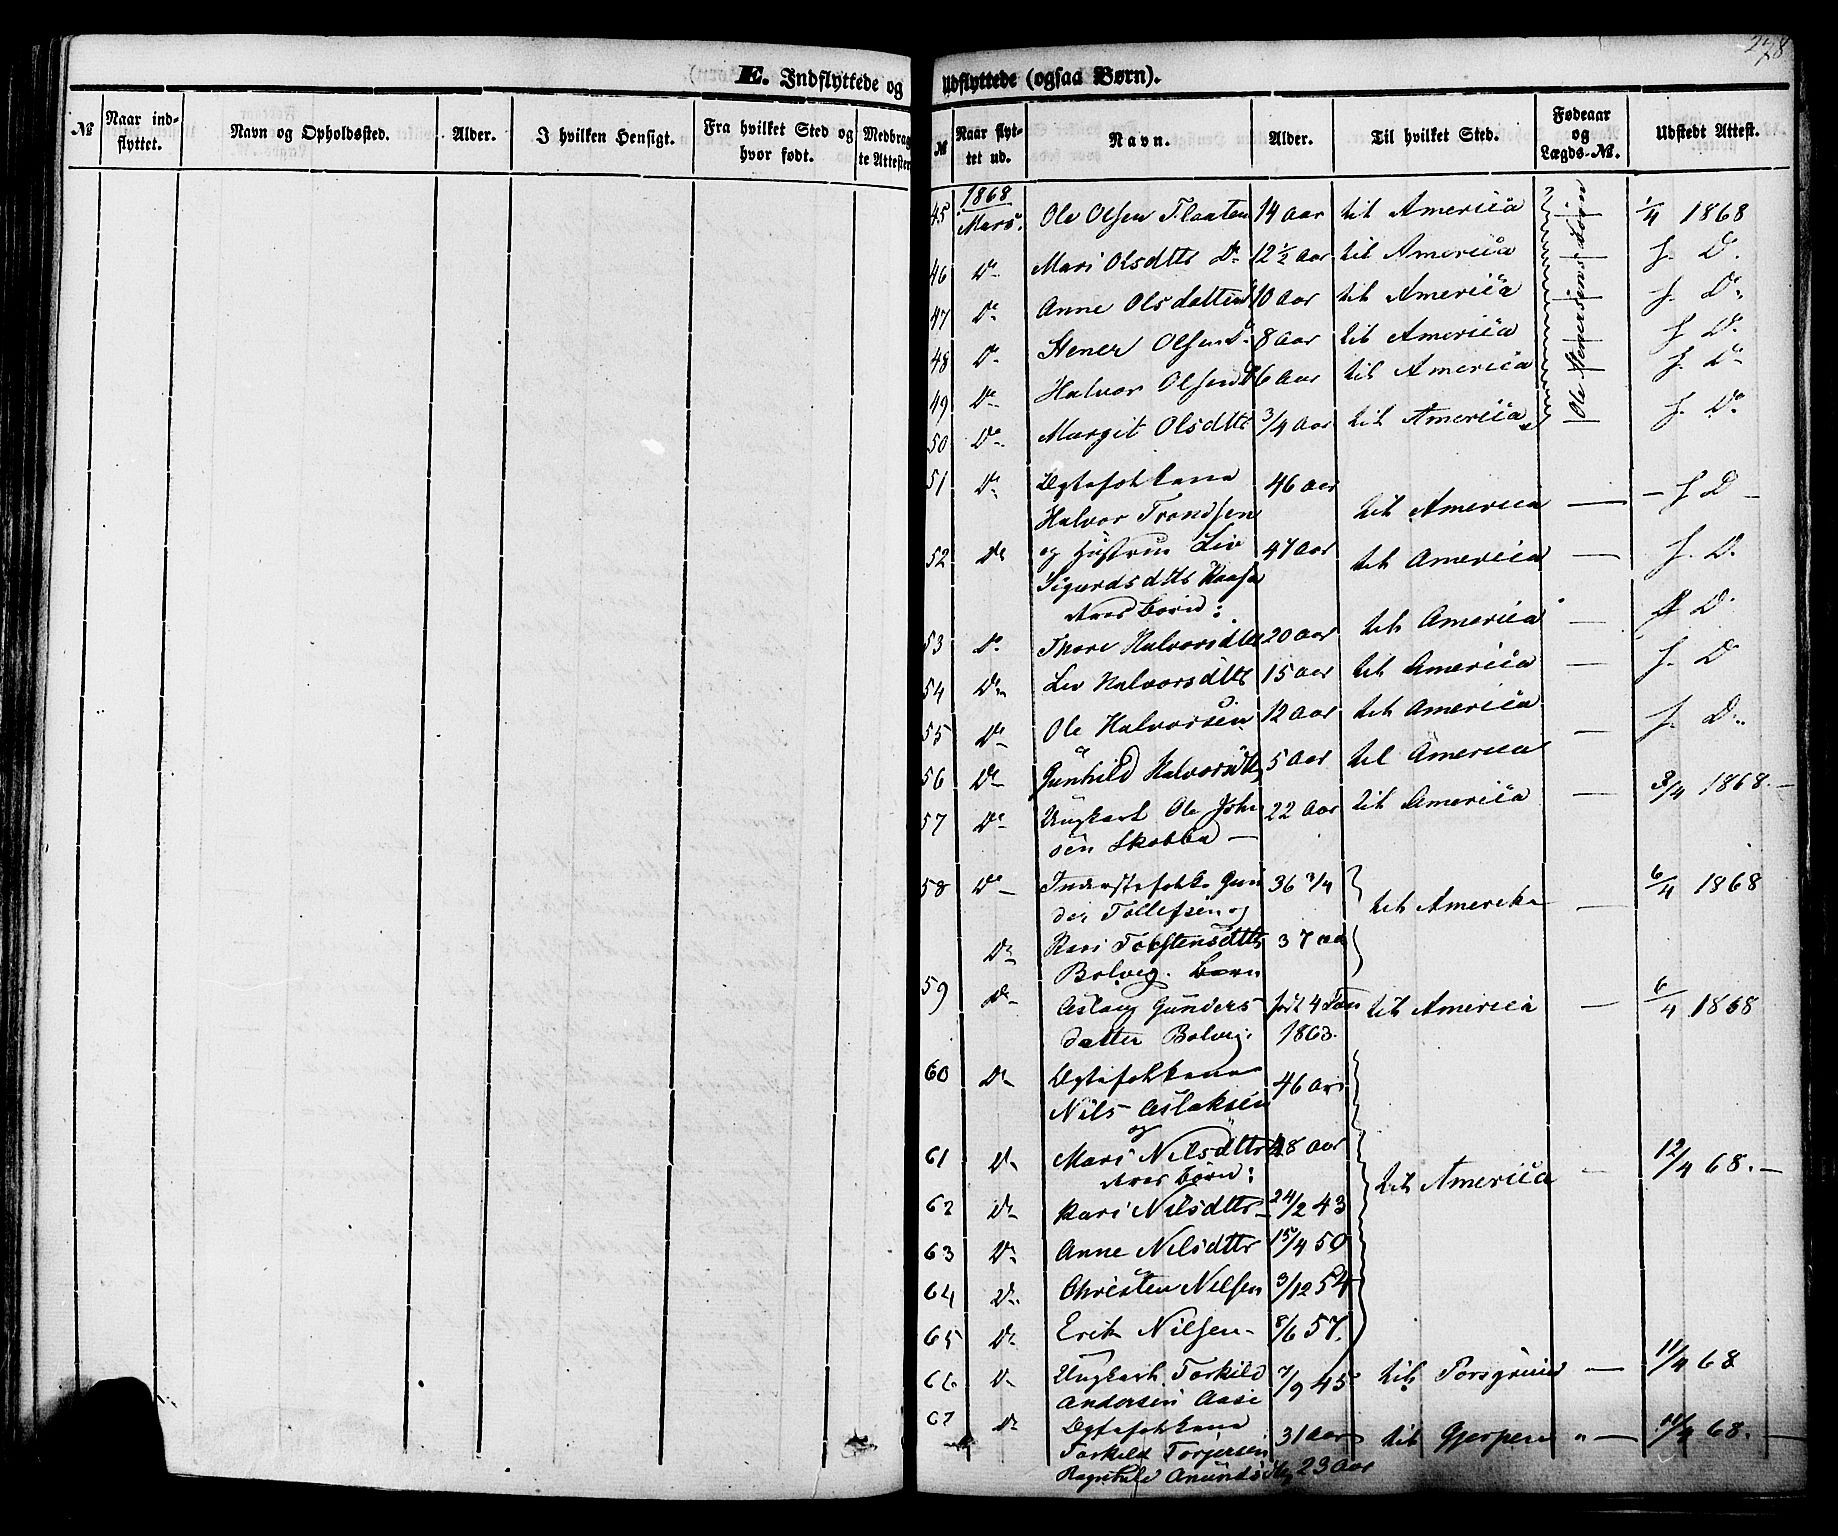 278
E. Indflyttede og
Udflyttede (ogsaa Børn).
№ Naar ind-flyttet. Navn og Opholdssted. Alder. I hvilken Hensigt. Fra hvilket Sted og hvor født. Medbragte Attester
№ Naar flyttet ud. Navn. Alder. Til hvilket Sted. Fødeaar og Lægds-№. Udstedt Attest.
1868
45 Mars. Ole Olsen Flaaten 14 Aar til America 1/4 1868
46 Do Mari Olsdttr Do 12 1/2 Aar til America f. D.
47 Do Anne Olsdatter 10 Aar til America f. Do
48 Do Stener Olsen Do 8 Aar til America f. Do
49 Do Halvor Olsen 6 Aar til America f. Do
50 Do Margit Olsdttr 3/4 Aar til America f. Do
Ole Stenersens Børn
51 Do Egtefolkene 46 Aar
Halvor Trondsen til America — f D —
52 Do og Hustrue Liv 47 Aar til America — f. D.
Sigurdsdttr Haase
deres Børn:
53 Do Thore Halvorsdtter 20 Aar til America — f D.
54 Do Liv Halvorsdttr 15 Aar til America — f. D
55 Do Ole Halvorsen 12 Aar til America
56 Do Gunhild Halvorsdttr 5 Aar til America — f. D.
57 Do Ungkarl Ole Johnsen Skobba — 22 Aar til America — 3/4 1868. —
58 Do Inderstefolk Gunder Tollefsen og 36 3/4 til Amerika — 6/4 1868
Do Kari Torstensdttr 37 aar
Bolveg. Børn
59 Do Aslaug Gundersdatter Bolveg. født 4 Jan 1863. til America — 6/4 1868
60 Do Egtefolkene
Nils Aslaksen 46 Aar
og
61 Do Mari Nilsdttr 48 Aar til America — 12/4 68. —
deres Børn:
62 Do Kari Nilsdttr 24/2 43
63 Do Anne Nilsdttr 15/4 50
64 Do Christen Nilsen 3/12 54
65 Do Erik Nilsen 8/6 57.
66 Do Ungkarl Torkild 7/9 45 til Porsgrund — 11/4 68
Andersen Aase
67 Do Egtefolkene
Torkild Torjersen 31 Aar til Gjerpen — 11/4 68. —
Ragnhild Anundsdttr 23 Aar